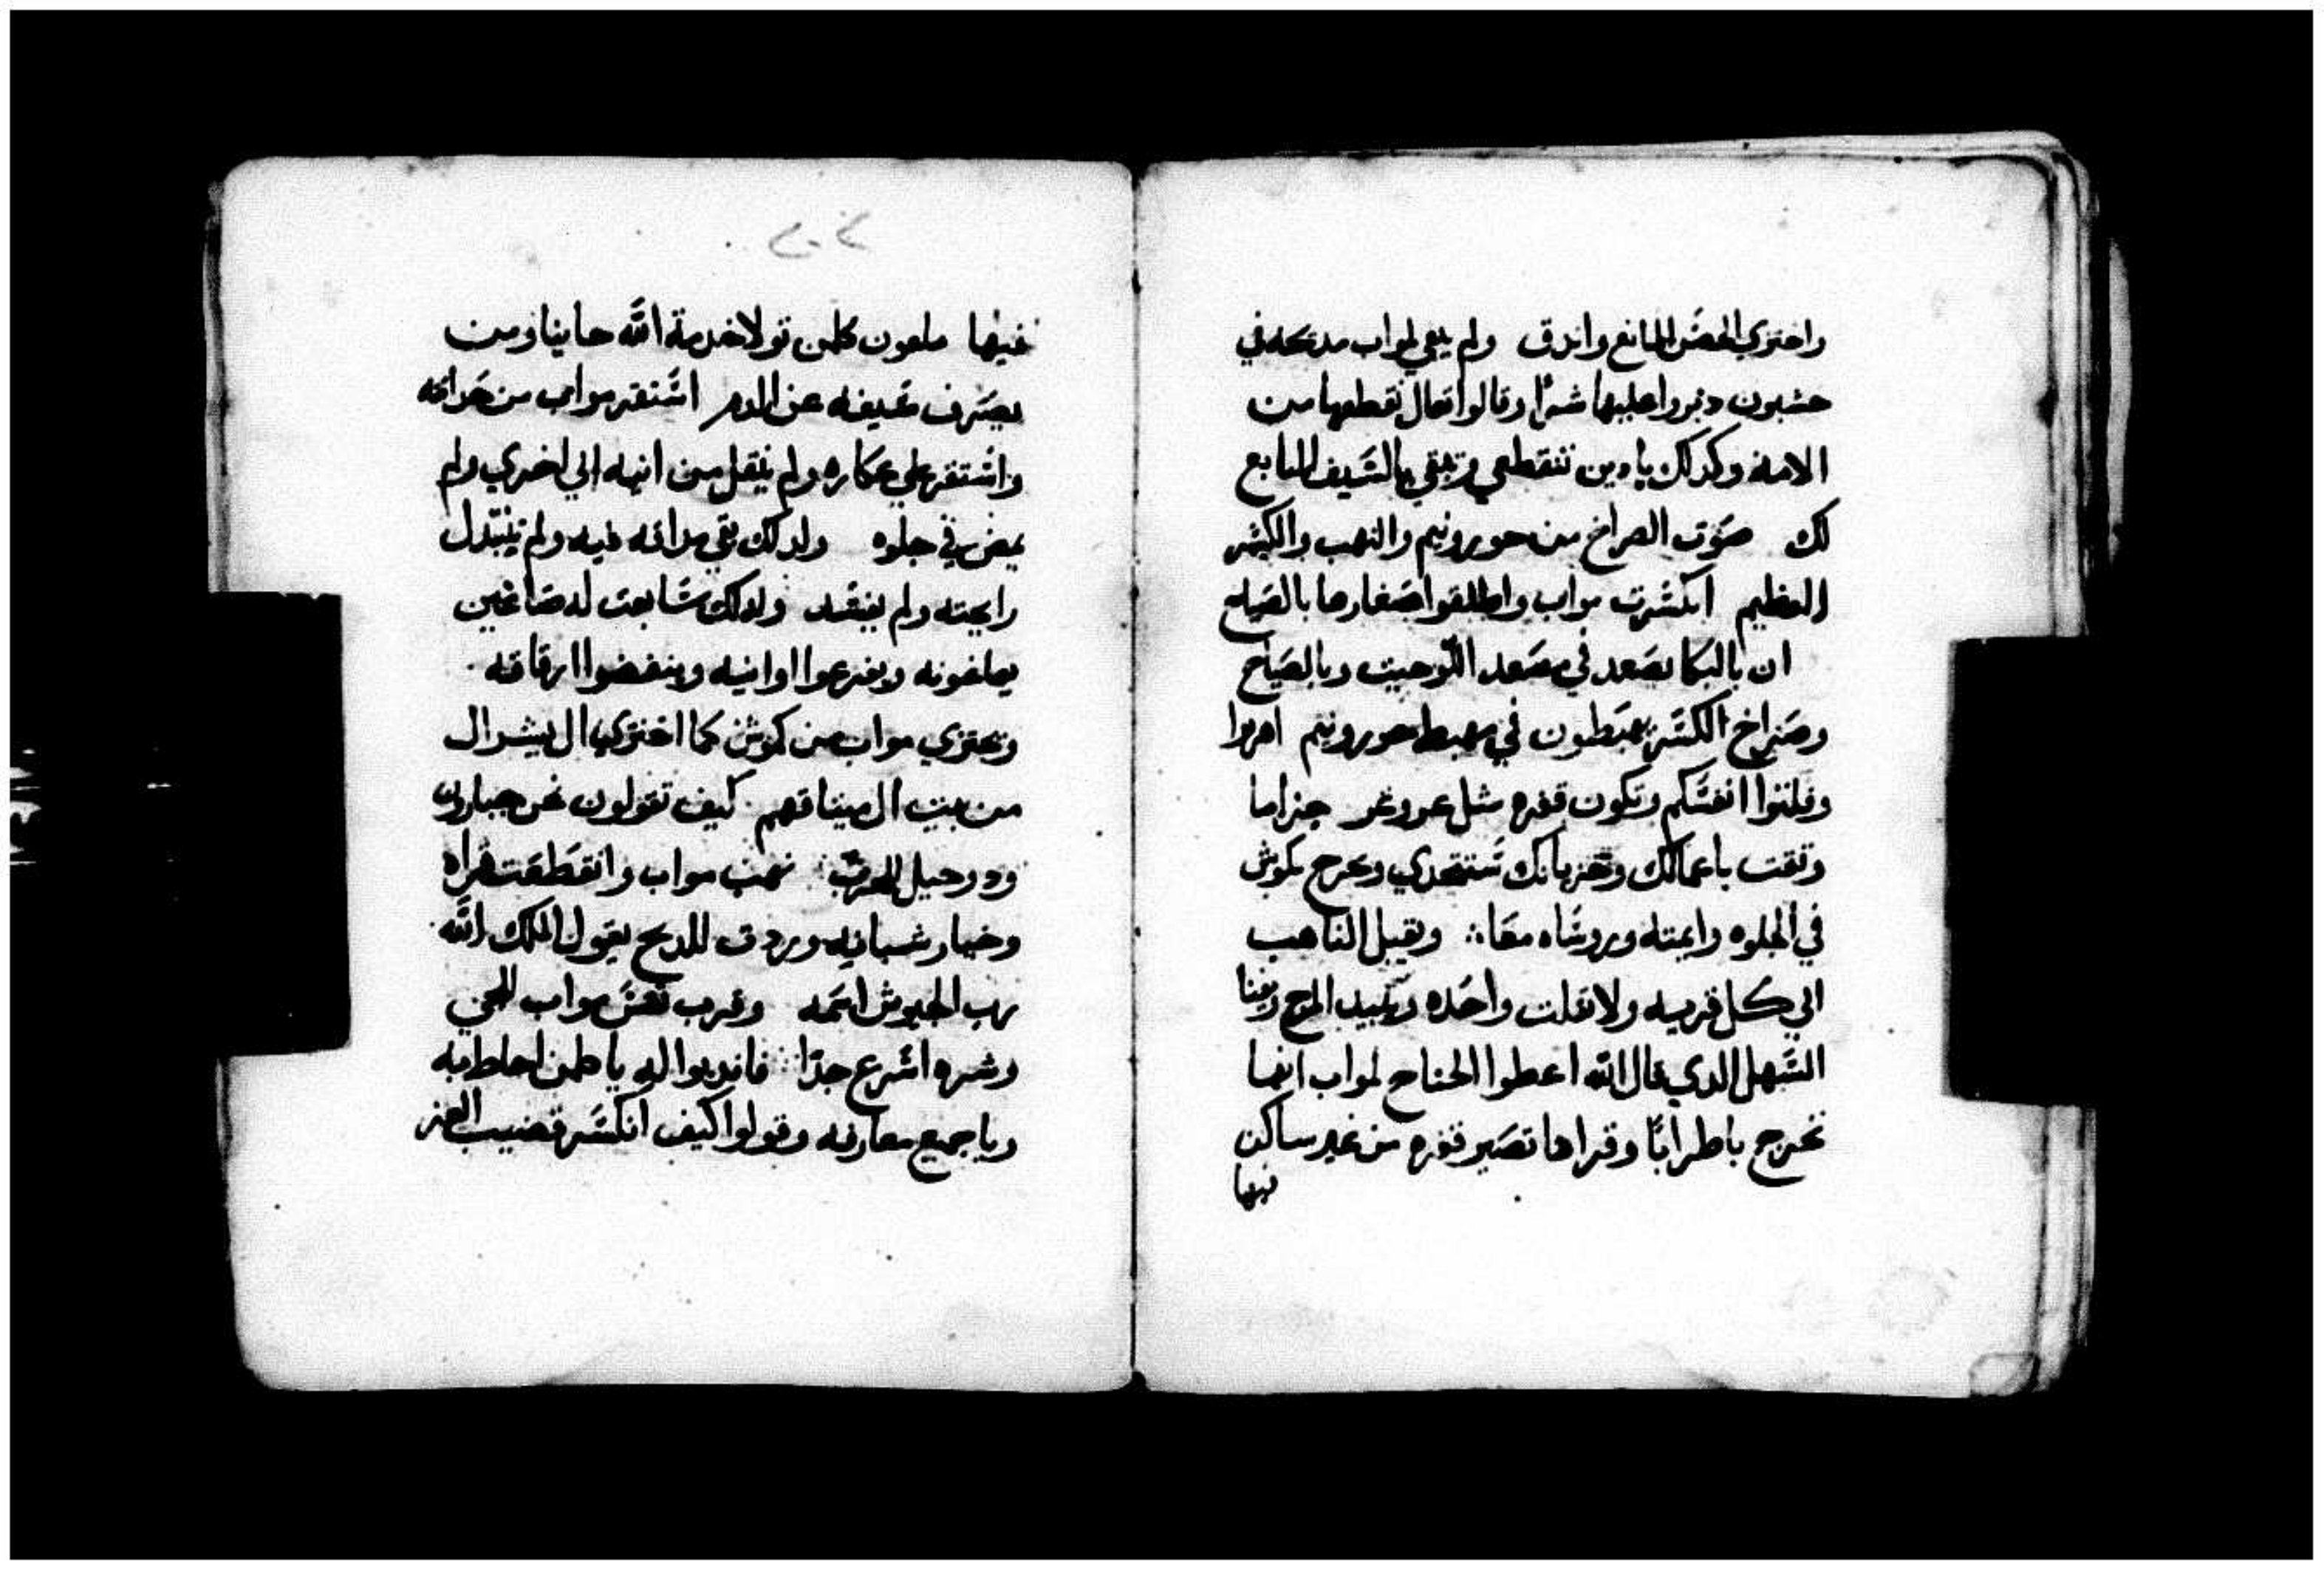 واختزي الحصن المانع واندق ولم يبقي لمواب مدبحه في
حشبون دبروا عليها شرًا وقالوا تعال نقطعها من
الامه وكدلك يا دمن تنقطعي وتبقي بالسيف التابع
لك صوت الصراخ من حورونيم والنهب والكسر
العظيم انكسرت مواب واطلقوا صغارها بالصياح
ان بالبكا يصعد في مصعد اللوحيت وبالصياح
وصراخ الكسر يهبطون في مهبط حورونيم اهربوا
وفلتوا انفسكم وتكون قفره مثل عروعر جزا ما
وثقت باعمالك وحزباتك تستتحدي وبخرج كموش
في الجلوه وايمته وروساه معا ويقبل الناهب
الي كل قريه ولا تفلت واحده ويبيد المرج ويفنا
السهل الدي قال الله اعطوا الجناح لمواب انها
تخرج باطرابًا وقراها تصير قفره من غير ساكن
فيها
فيها ملعون كلمن تولا خدمة الله حاينا ومن
يصرف سيفه عن الدم استقر مواب من حداثته
واستقر علي عكاره ولم ينقل من انيه الي اخري ولم
يمض في جلوه ولدلك بقي مداقه فيه ولم يتبدل
رايحته ولم يفسد ولدلك سابعت له صاغين
يصاغونه ويفرغوا اوانيه وينفضوا ازقاقه
وتختزي مواب من كموش كما اختزي ال يسرال
من بيت ال ميتاقهم كيف تقولون نحن جبارون
ودوحيل للحرب نهب مواب وانقطعت قراه
وخيار شبانه وردت للدبح يقول الملك الله
رب الجيوش اسمه وقرب تعس مواب للمجي
وشره اسرع جدًا فاندبوا له يا كلمن احاط به
ويا جميع معارفه وقولوا كيف انكسر قضيب العز